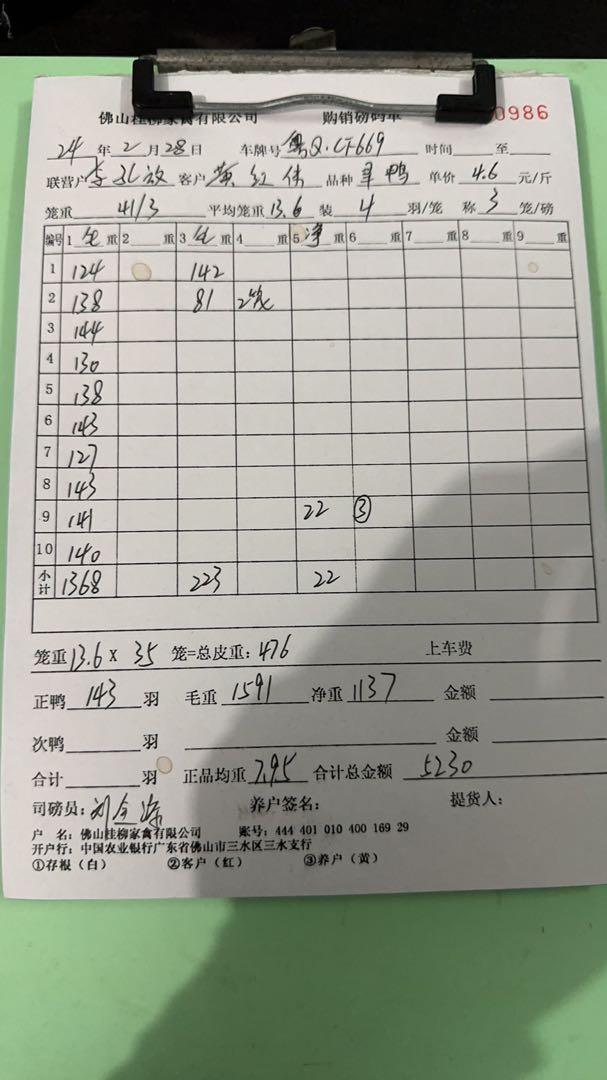 佛山桂柳家禽有限公司 购销磅码单 0986
24 年 2 月 28 日 车牌号 粤Q·CF669 时间 至
联营户 李 放 客户 黄红伟 品种 鸭 单价 4.6 元/斤
笼重 41/3 平均笼重 13.6 装 4 羽/笼 称 3 笼/磅
编号 1 毛 重 2 重 3 毛 重 4 重 5 净 重 6 重 7 重 8 重 9 重
1 124 142
2 138 81 2笼
3 144
4 130
5 138
6 143
7 127
8 143
9 141 22 ③
10 140
小计 1368 223 22
笼重 13.6 X 35 笼=总皮重: 476 上车费
正鸭 143 羽 毛重 1591 净重 1137 金额
次鸭 羽 金额
合计 羽 正品均重 7.95 合计总金额 5230
司磅员: 刘 养户签名: 提货人:
户 名: 佛山桂柳家禽有限公司 账号: 444 401 010 400 169 29
开户行: 中国农业银行广东省佛山市三水区三水支行
①存根(白) ②客户(红) ③养户(黄)